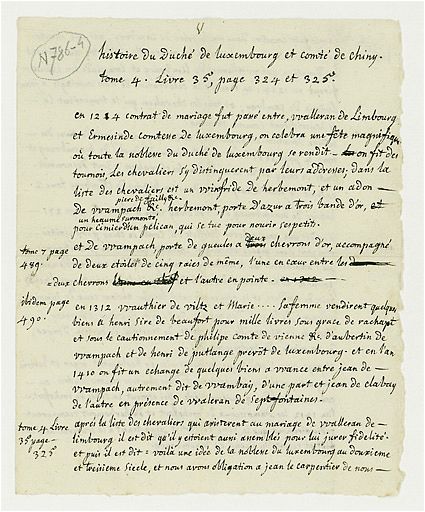 N786-4
histoire du Duché de luxembourg et comté de chiny.
tome 4. Livre 35, page 324 et 325.
en 1214 contrat de mariage fut passé entre, vvalleran de Limbourg
et Ermesinde comtesse de luxembourg, on celebra une fête magnifique
où toute la noblesse du duché de luxembourg se rendit - on fit des
tournois, Les chevalier s'y distinguerent par leurs addresses, dans la
liste des chevaliers est un vvinfride de herbemont, et un aidon -
De vvampach &c. herbemont, porte D'azur a trois bande d'or, et
un heaume surmonté
pour cimier d'un pelican, qui se tue pour nourir ses petit.
tome 7 page
489.
et De vvampach porte de gueules a deux chevrons d'or, accompagné
de deux etoiles de cinq raies de même, l'une en cœur entre les
deux
chevrons et l'autre en pointe.
ibidem page
490.
en 1312 vvauthier de viltz et Marie .... sa femme vendirent quelques
biens a henri Sire de beaufort pour mille livres sous grace de rachapt
et sous le cautionnement de philipe comte de vienne &c. d'aubertin de
vvampach et de henri de putlange prevôt de luxembourg. et en l'an
1410 on fit un echange de quelques biens a vvance entre jean de -
vvampach, autrement dit de vvambay, d'une part et jean de clabay
de l'autre en présence de vvaleran de Sept fontaines -
tome 4. Livre
35 page -
325
après la liste des chevaliers qui assisterent au mariage de vvalleran de -
limbourg il est dit qu'il y estoient aussi assemblés pour lui jurer fidelité.
et puis il est dit = voilà une idée de la noblesse du luxembourg au douzieme
et treisieme Siecle, et nous avons obligation a jean le carpentier de nous -